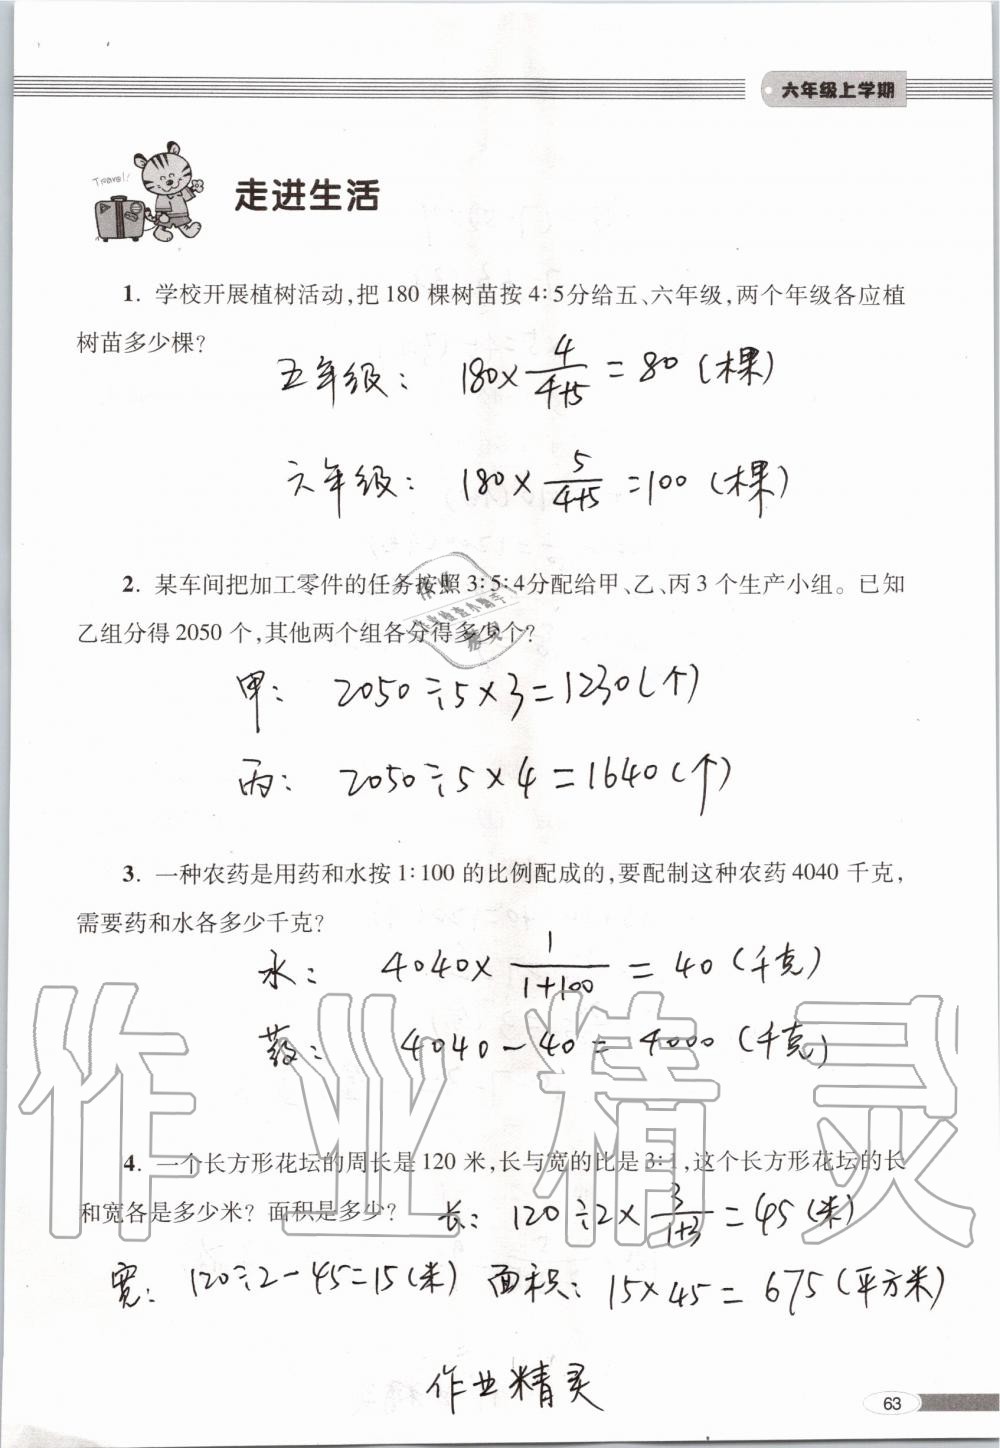 六年级上学期
Travel!
走进生活
1. 学校开展植树活动,把180棵树苗按4∶5分给五、六年级,两个年级各应植
树苗多少棵?
五年级: 180×4/(4+5)=80(棵)
六年级: 180×5/(4+5)=100(棵)
2. 某车间把加工零件的任务按照3∶5∶4分配给甲、乙、丙3个生产小组。已知
乙组分得2050个,其他两个组各分得多少个?
甲: 2050÷5×3=1230(个)
丙: 2050÷5×4=1640(个)
3. 一种农药是用药和水按1∶100的比例配成的,要配制这种农药4040千克,
需要药和水各多少千克?
水: 4040×1/(1+100)=40(千克)
药: 4040-40=4000(千克)
作业精灵
4. 一个长方形花坛的周长是120米,长与宽的比是3∶1,这个长方形花坛的长
和宽各是多少米?面积是多少?
长: 120÷2×3/(1+3)=45(米)
宽: 120÷2-45=15(米) 面积: 15×45=675(平方米)
作业精灵
63